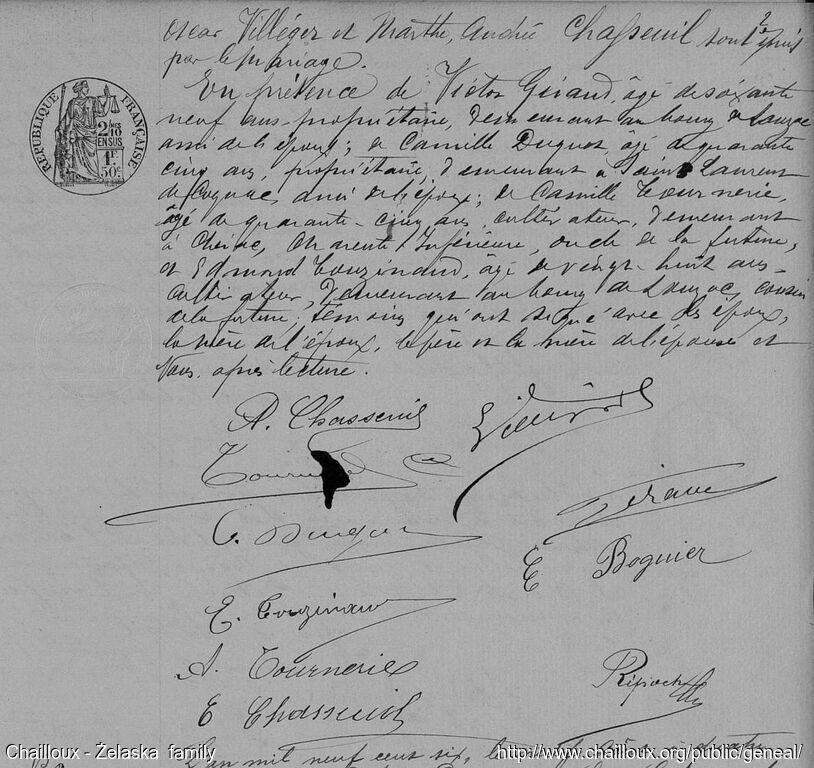 Oscar Villéger et Marthe, André Chasseuil sont unis
par le mariage.
En présence de Victor Géraud, âgé de soixante
neuf ans, propriétaire, demeurant au bourg de Louzac
ami de l'époux; de Camille Duguet, âgé de quarante
cinq ans, propriétaire, demeurant à Saint Laurent
de Cognac, ami de l'époux; de Camille Tournerie,
âgé de quarante-cinq ans, cultivateur, demeurant
à Cherac, Charente Inférieure, oncle de la future,
et Edmond Couzinaud, âgé de vingt-huit ans
cultivateur, demeurant au bourg de Louzac, cousin
de la future; témoins qui ont signé avec les époux,
la mère de l'époux, le père et la mère de l'épouse et
Nous, après lecture.
A. Chasseuil
C.
E Boguier
E. Couzinaud
A. Tournerie
E Chasseuil
RÉPUBLIQUE FRANÇAISE
2/10
EN SUS
1F
50c
L'an mil neuf cent six, le
Chailloux - Želaska family
http://www.chailloux.org/public/geneal/